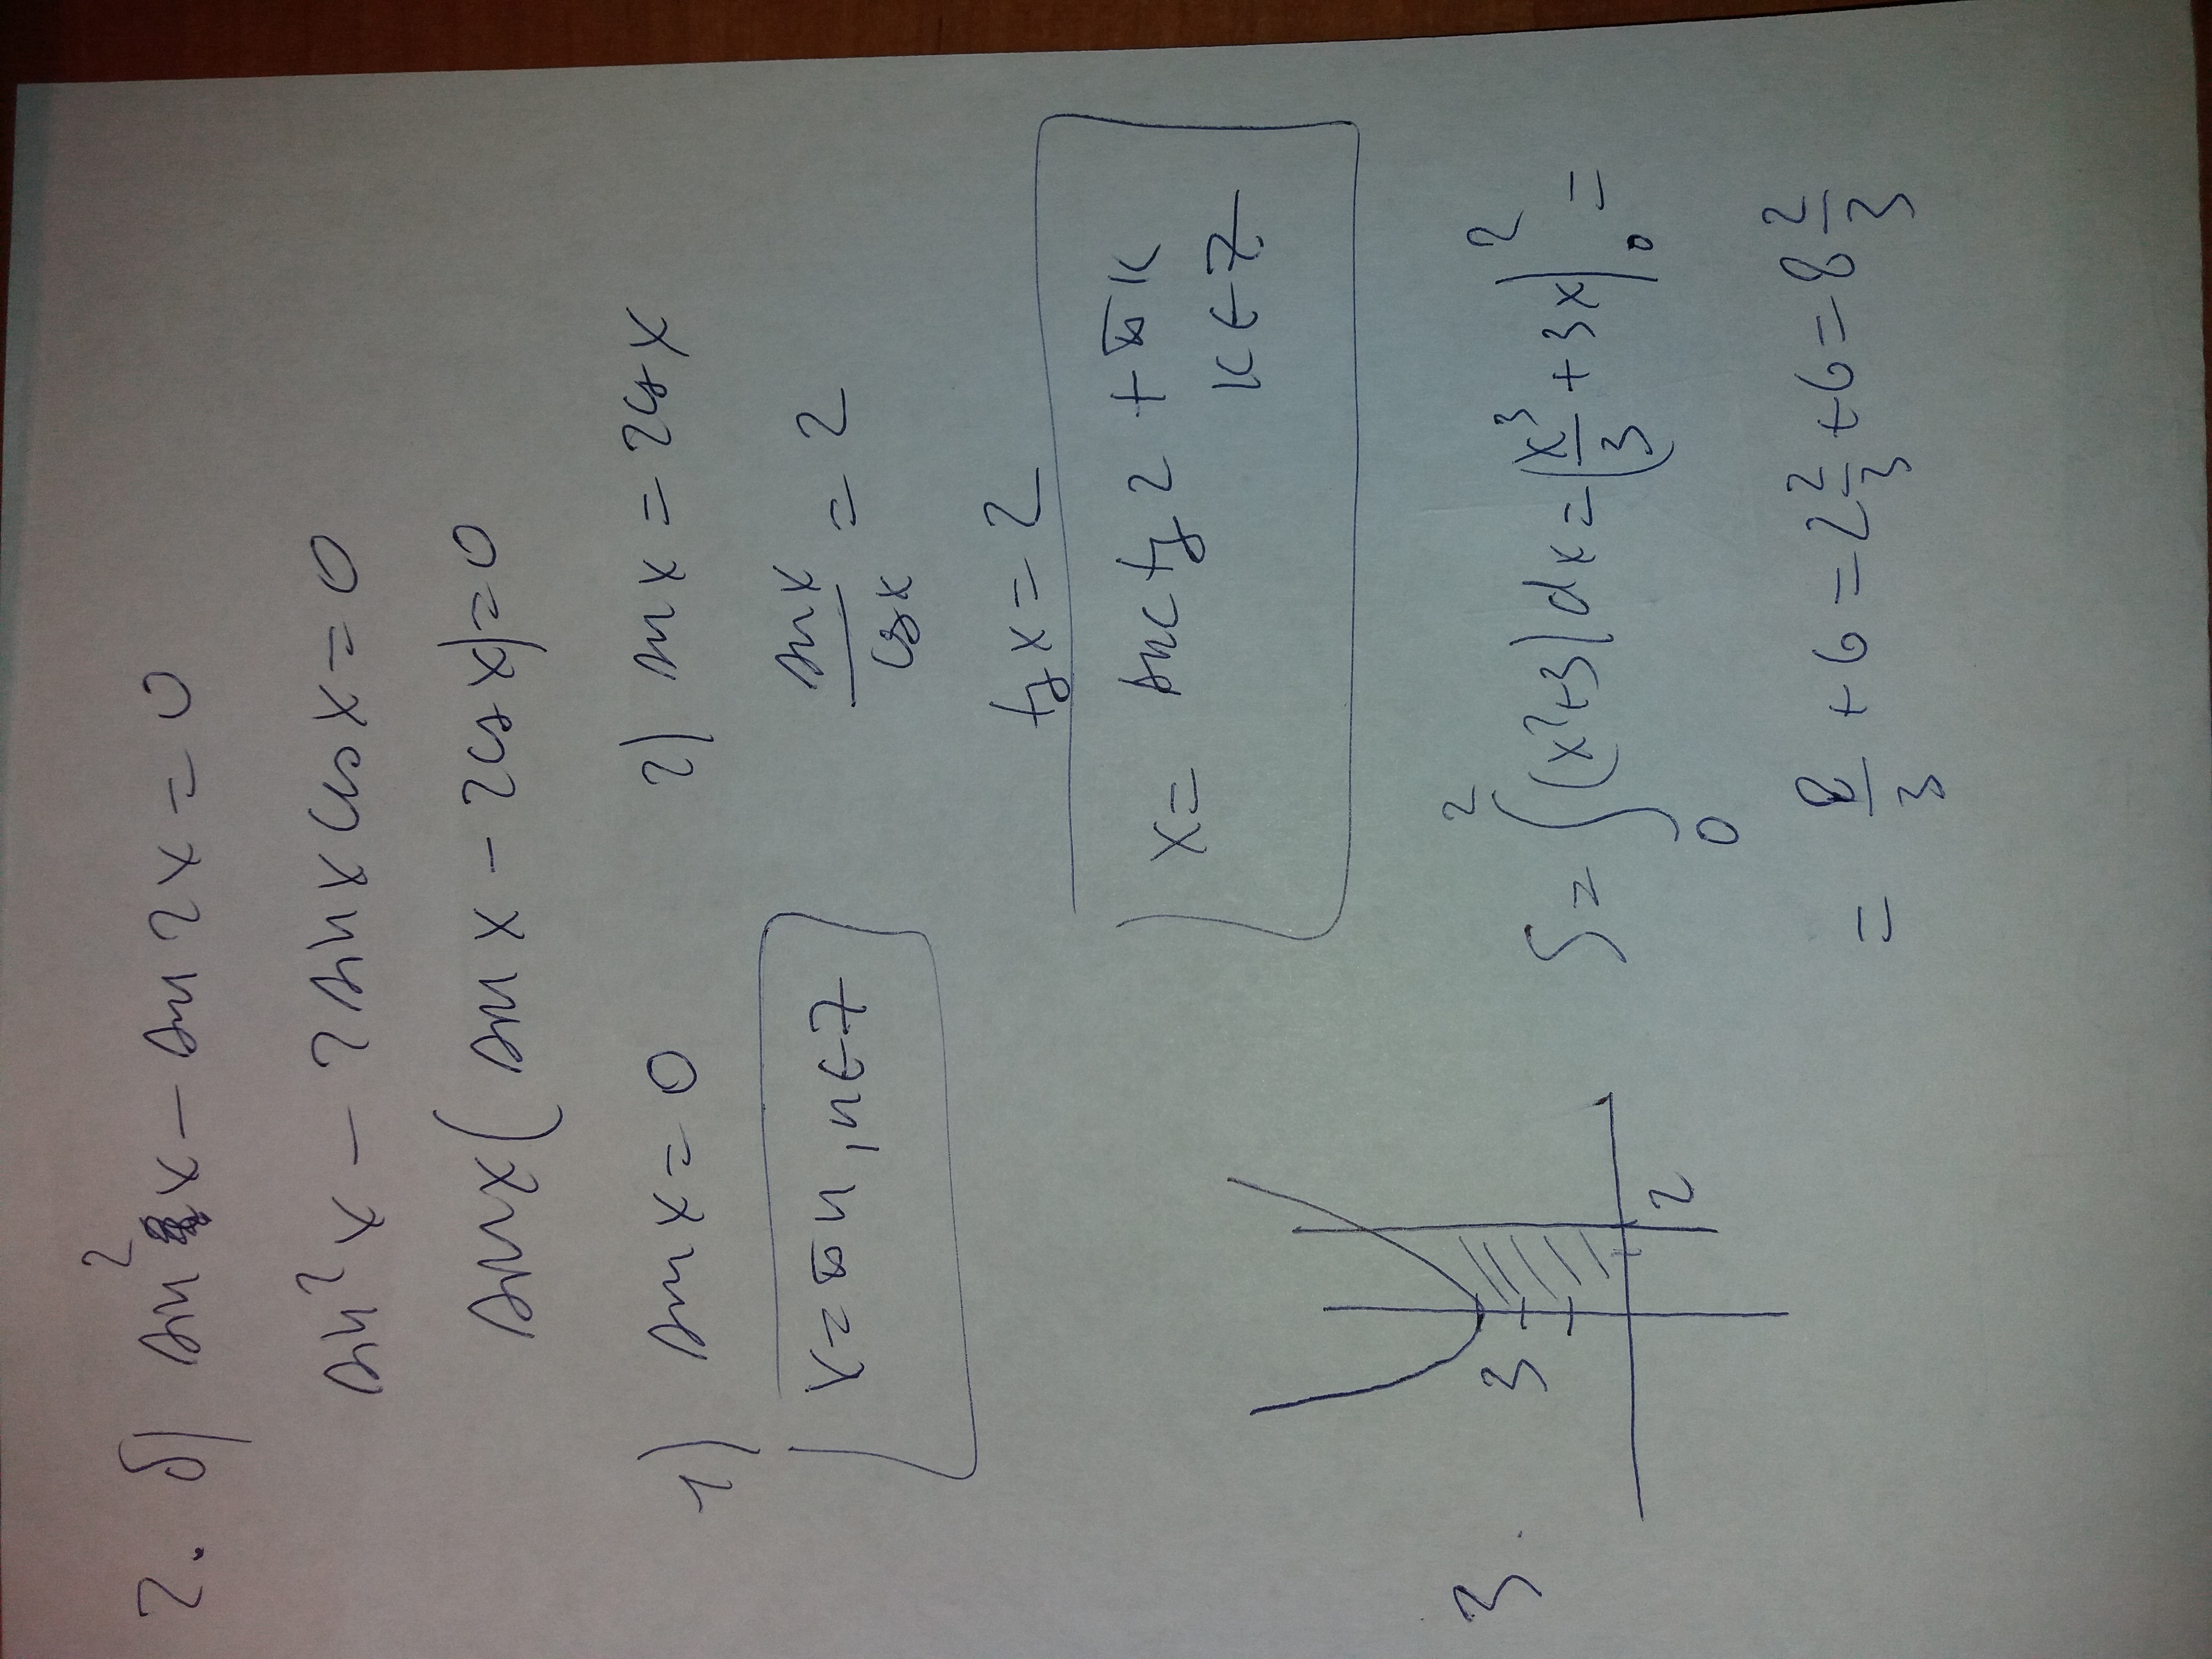 2. б) sin²x - sin 2x = 0
sin²x - 2 sin x cos x = 0
sin x ( sin x - 2cos x) = 0
1) sin x = 0
x = πn, n ∈ Z
2) sin x = 2cos x
sin x / cos x = 2
tg x = 2
x = arctg 2 + πk
k ∈ Z
3.
3
2
S = ∫₀² (x²+3) dx = (x³/3 + 3x)|₀² =
= 8/3 + 6 = 2 2/3 + 6 = 8 2/3